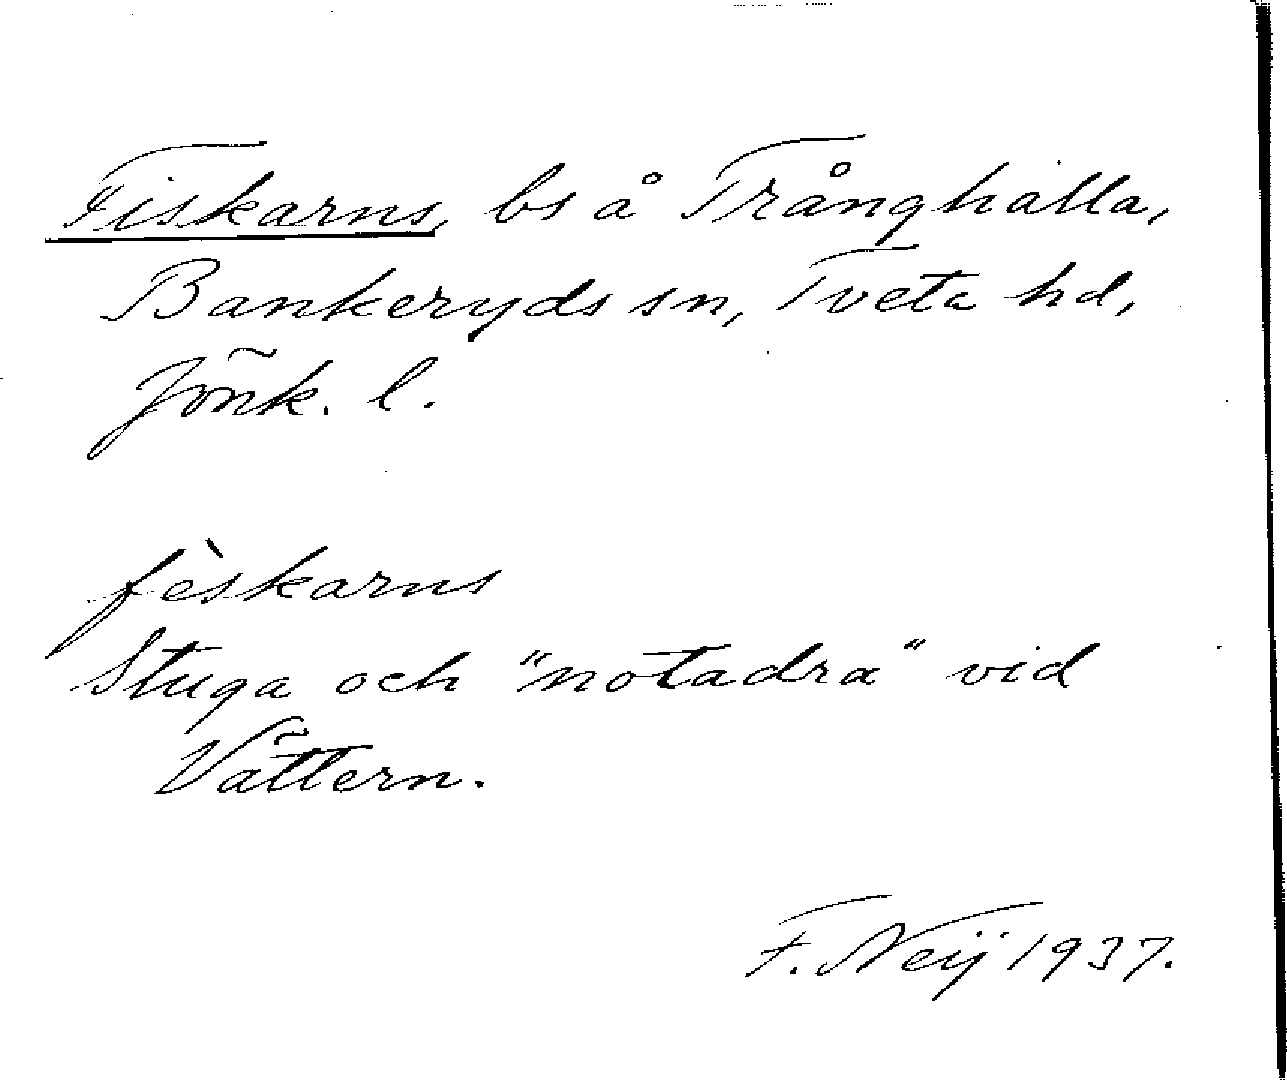 Fiskarns, bs å Trånghalla,
Bankeryds sn, Tveta hd,
Jönk. l.
fèskarns
Stuga och "notadra" vid
Vättern.
F. Neij 1937.